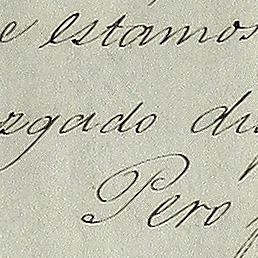 e estamos
zgado du
Pero